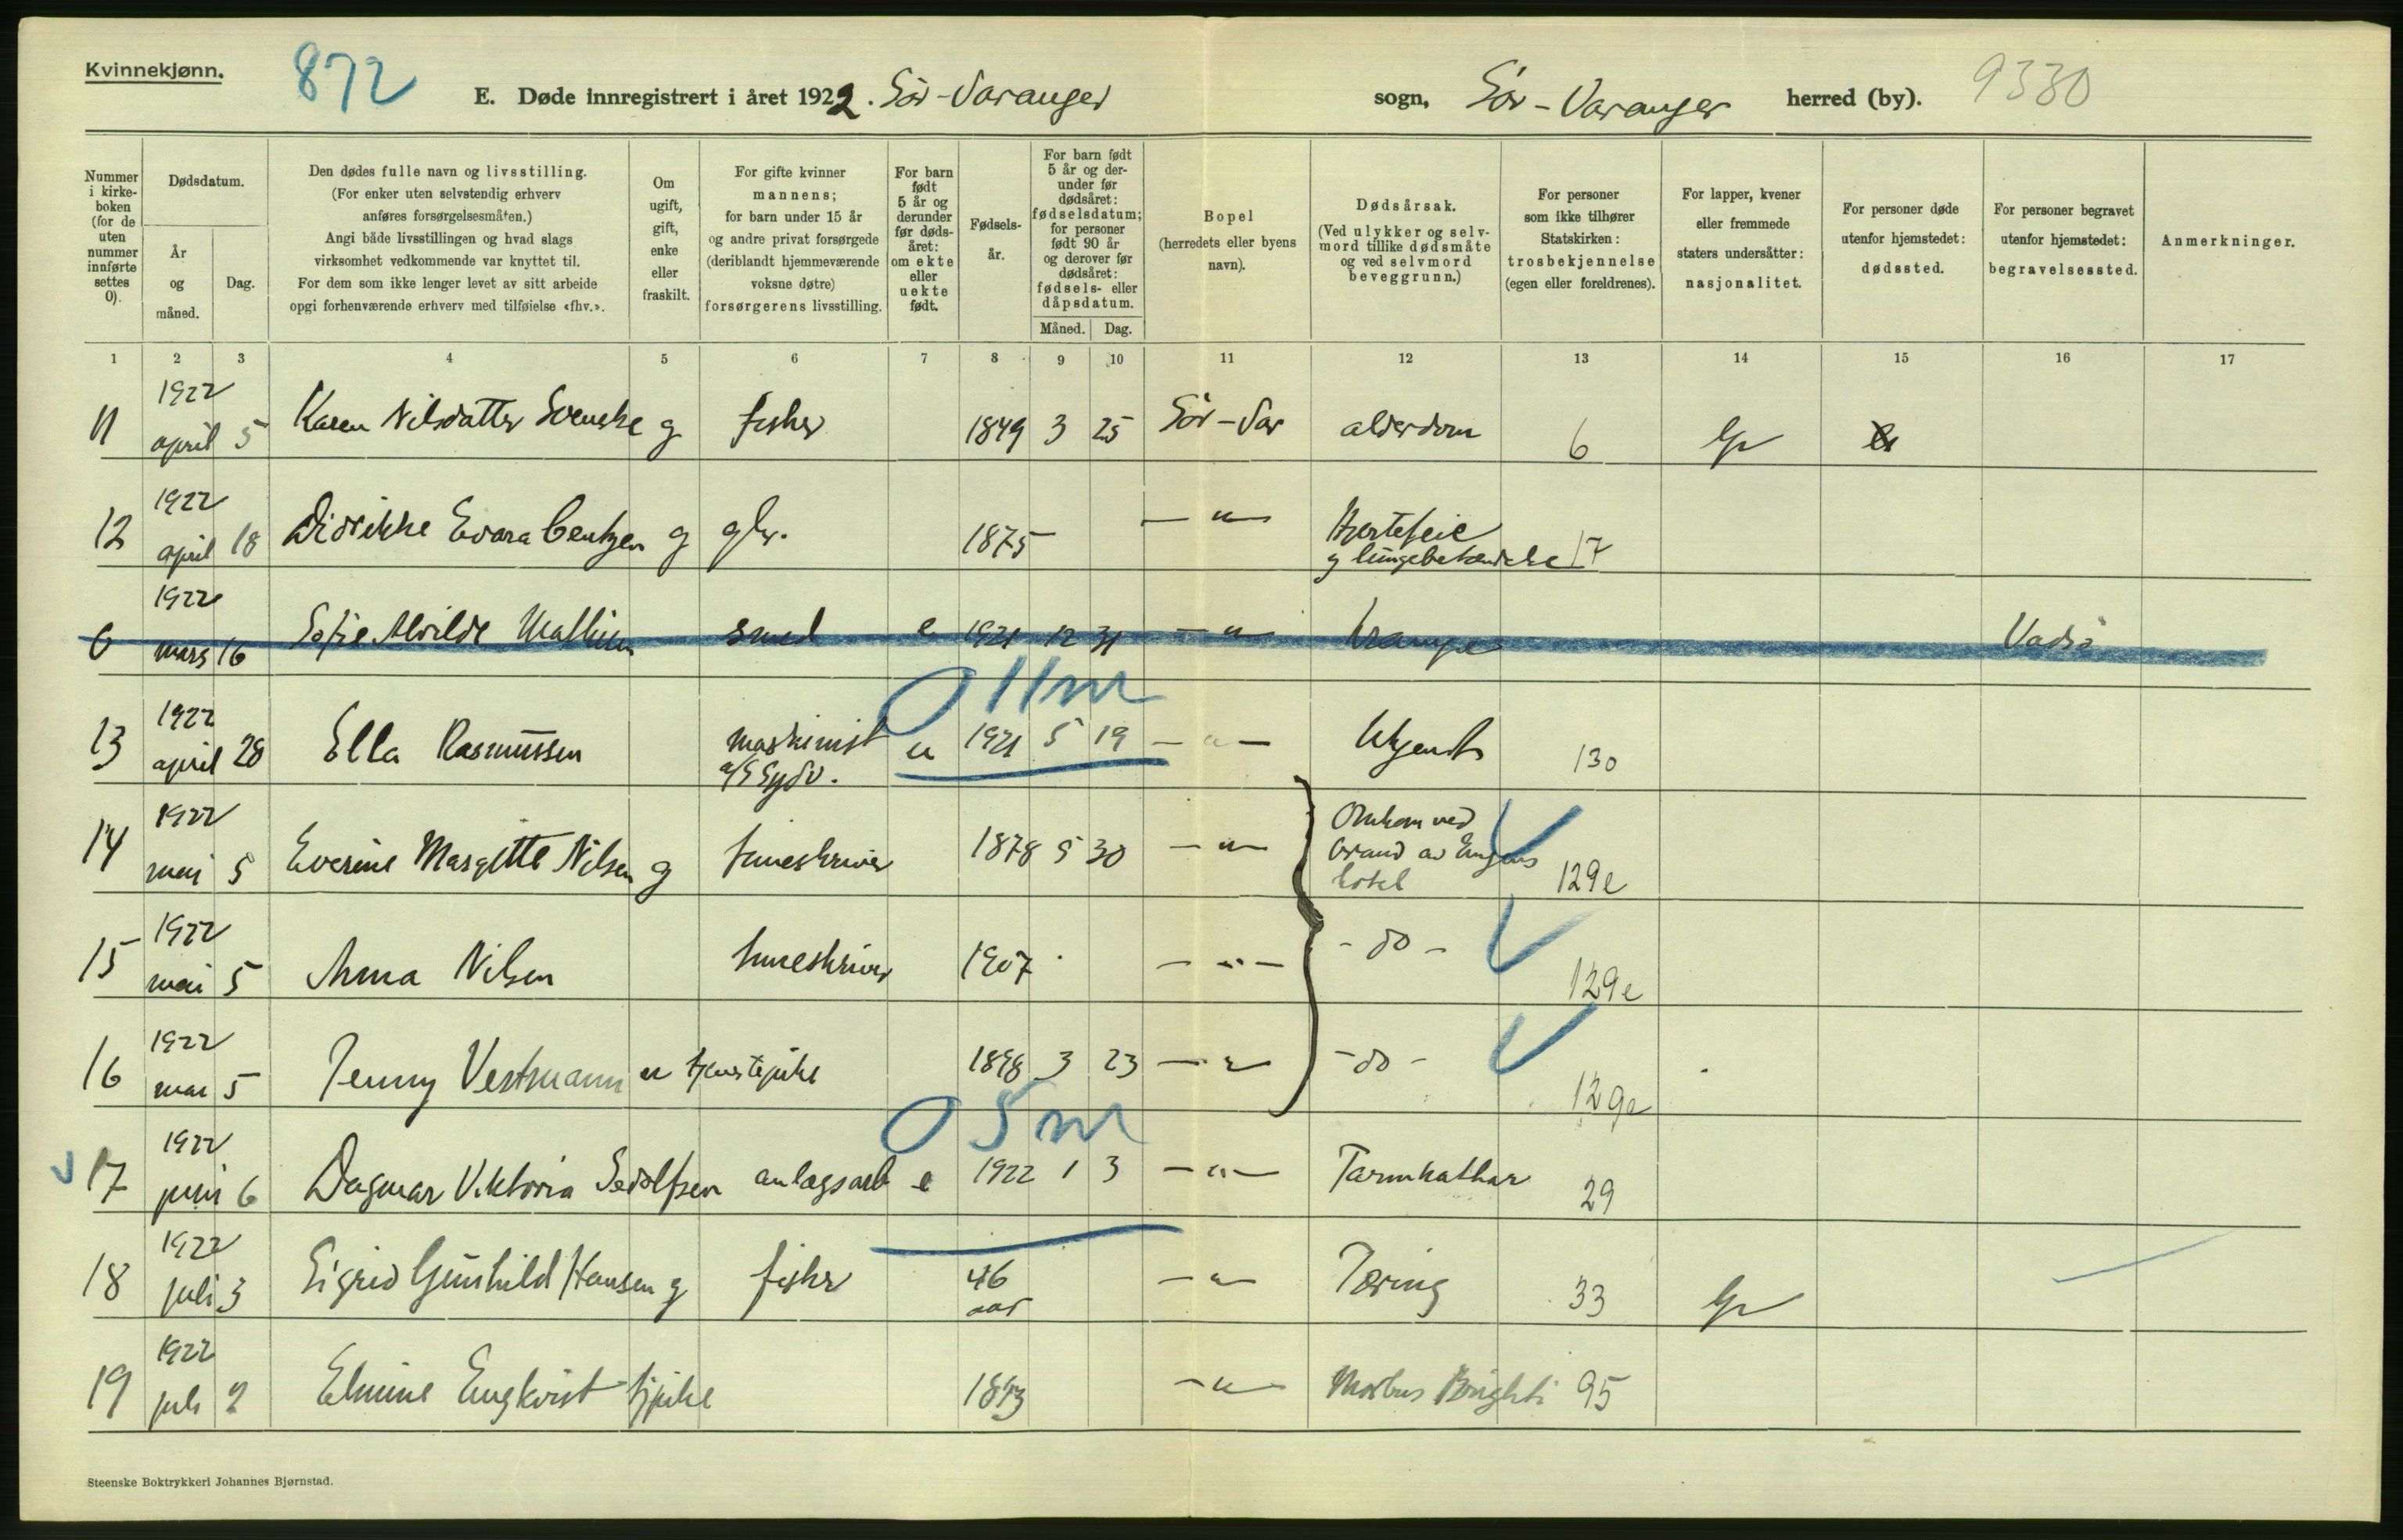 Kvinnekjønn.
872
E. Døde innregistrert i året 1922. Sör-Varanger sogn, Sör-Varanger herred (by). 9330
Nummer i kirke-boken (for de uten nummer innførte settes 0).
Dødsdatum.
År og måned.
Dag.
Den dødes fulle navn og livsstilling.
(For enker uten selvstendig erhverv
anføres forsørgelsesmåten.)
Angi både livsstillingen og hvad slags
virksomhet vedkommende var knyttet til.
For dem som ikke lenger levet av sitt arbeide
opgi forhenværende erhverv med tilføielse «fhv.».
Om ugift, gift, enke eller fraskilt.
For gifte kvinner
mannens;
for barn under 15 år
og andre privat forsørgede
(deriblandt hjemmeværende
voksne døtre)
forsørgerens livsstilling.
For barn født 5 år og derunder før døds-året: om ekte eller uekte født.
Fødsels-år.
For barn født 5 år og der-under før dødsåret: fødselsdatum; for personer født 90 år og derover før dødsåret: fødsels- eller dåpsdatum.
Måned.
Dag.
Bopel
(herredets eller byens
navn).
Dødsårsak.
(Ved ulykker og selv-
mord tillike dødsmåte
og ved selvmord
beveggrunn.)
For personer
som ikke tilhører
Statskirken:
trosbekjennelse
(egen eller foreldrenes).
For lapper, kvener
eller fremmede
staters undersåtter:
nasjonalitet.
For personer døde
utenfor hjemstedet:
dødssted.
For personer begravet
utenfor hjemstedet:
begravelsessted.
Anmerkninger.
1 2 3 4 5 6 7 8 9 10 11 12 13 14 15 16 17
11 1922 april 5 Karen Nilsdatter Svenske g fisker 1849 3 25 Sör-Var alderdom 6
12 1922 april 18 Didrikke Evara Bentzen g 1875 -"- Hjertefeil
g lungebetændelse 17
0 1922 mars 16 Sofie Alvilde Mathisen smed e 1921 12 31 -"- krampe Vadsö
0 11m
13 1922 april 28 Ella Rasmussen maskinist
a/S Sydv. u 1921 5 19 -"- Ukjendt 130
14 1922 mai 5 Everine Margitte Nilsen g 1878 5 30 -"- Omkom ved
brand av Engens
hotel 129e
15 1922 mai 5 Anna Nilsen 1907 -"- -do- 129e
16 1922 mai 5 Jenny Vestmann u tjenestepike 1898 3 23 -"- -do- 129e
0 5m
17 1922 juni 6 Dagmar Viktoria Sedolfsen anlægsarb e 1922 1 3 -"- Tarmkathar 29
18 1922 juli 3 Sigrid Gunhild Hansen g fisker 46
aar -"- Tæring 33
19 1922 juli 2 Elmine Engkvist tjpike 1873 -"- Morbus Brighti 95
Steenske Boktrykkeri Johannes Bjørnstad.